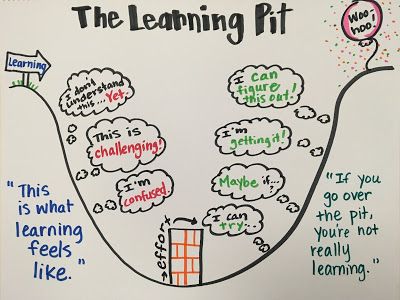 The Learning Pit
Learning
Woo-i
hoo!
I don't
understand
this... Yet.
This is
challenging!
I'm
confused.
effort
I can
try...
Maybe if...?
I'm
getting it!
I can
figure
this out!
"This
is what
learning
feels
like."
"If you
go over
the pit,
you're not
really
learning."